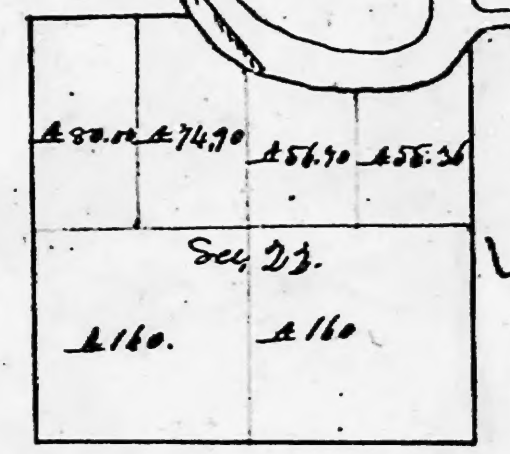 A 80.00 A 74,90
A 56.90 A 55.36
Sec, 23.
A 160. A 160